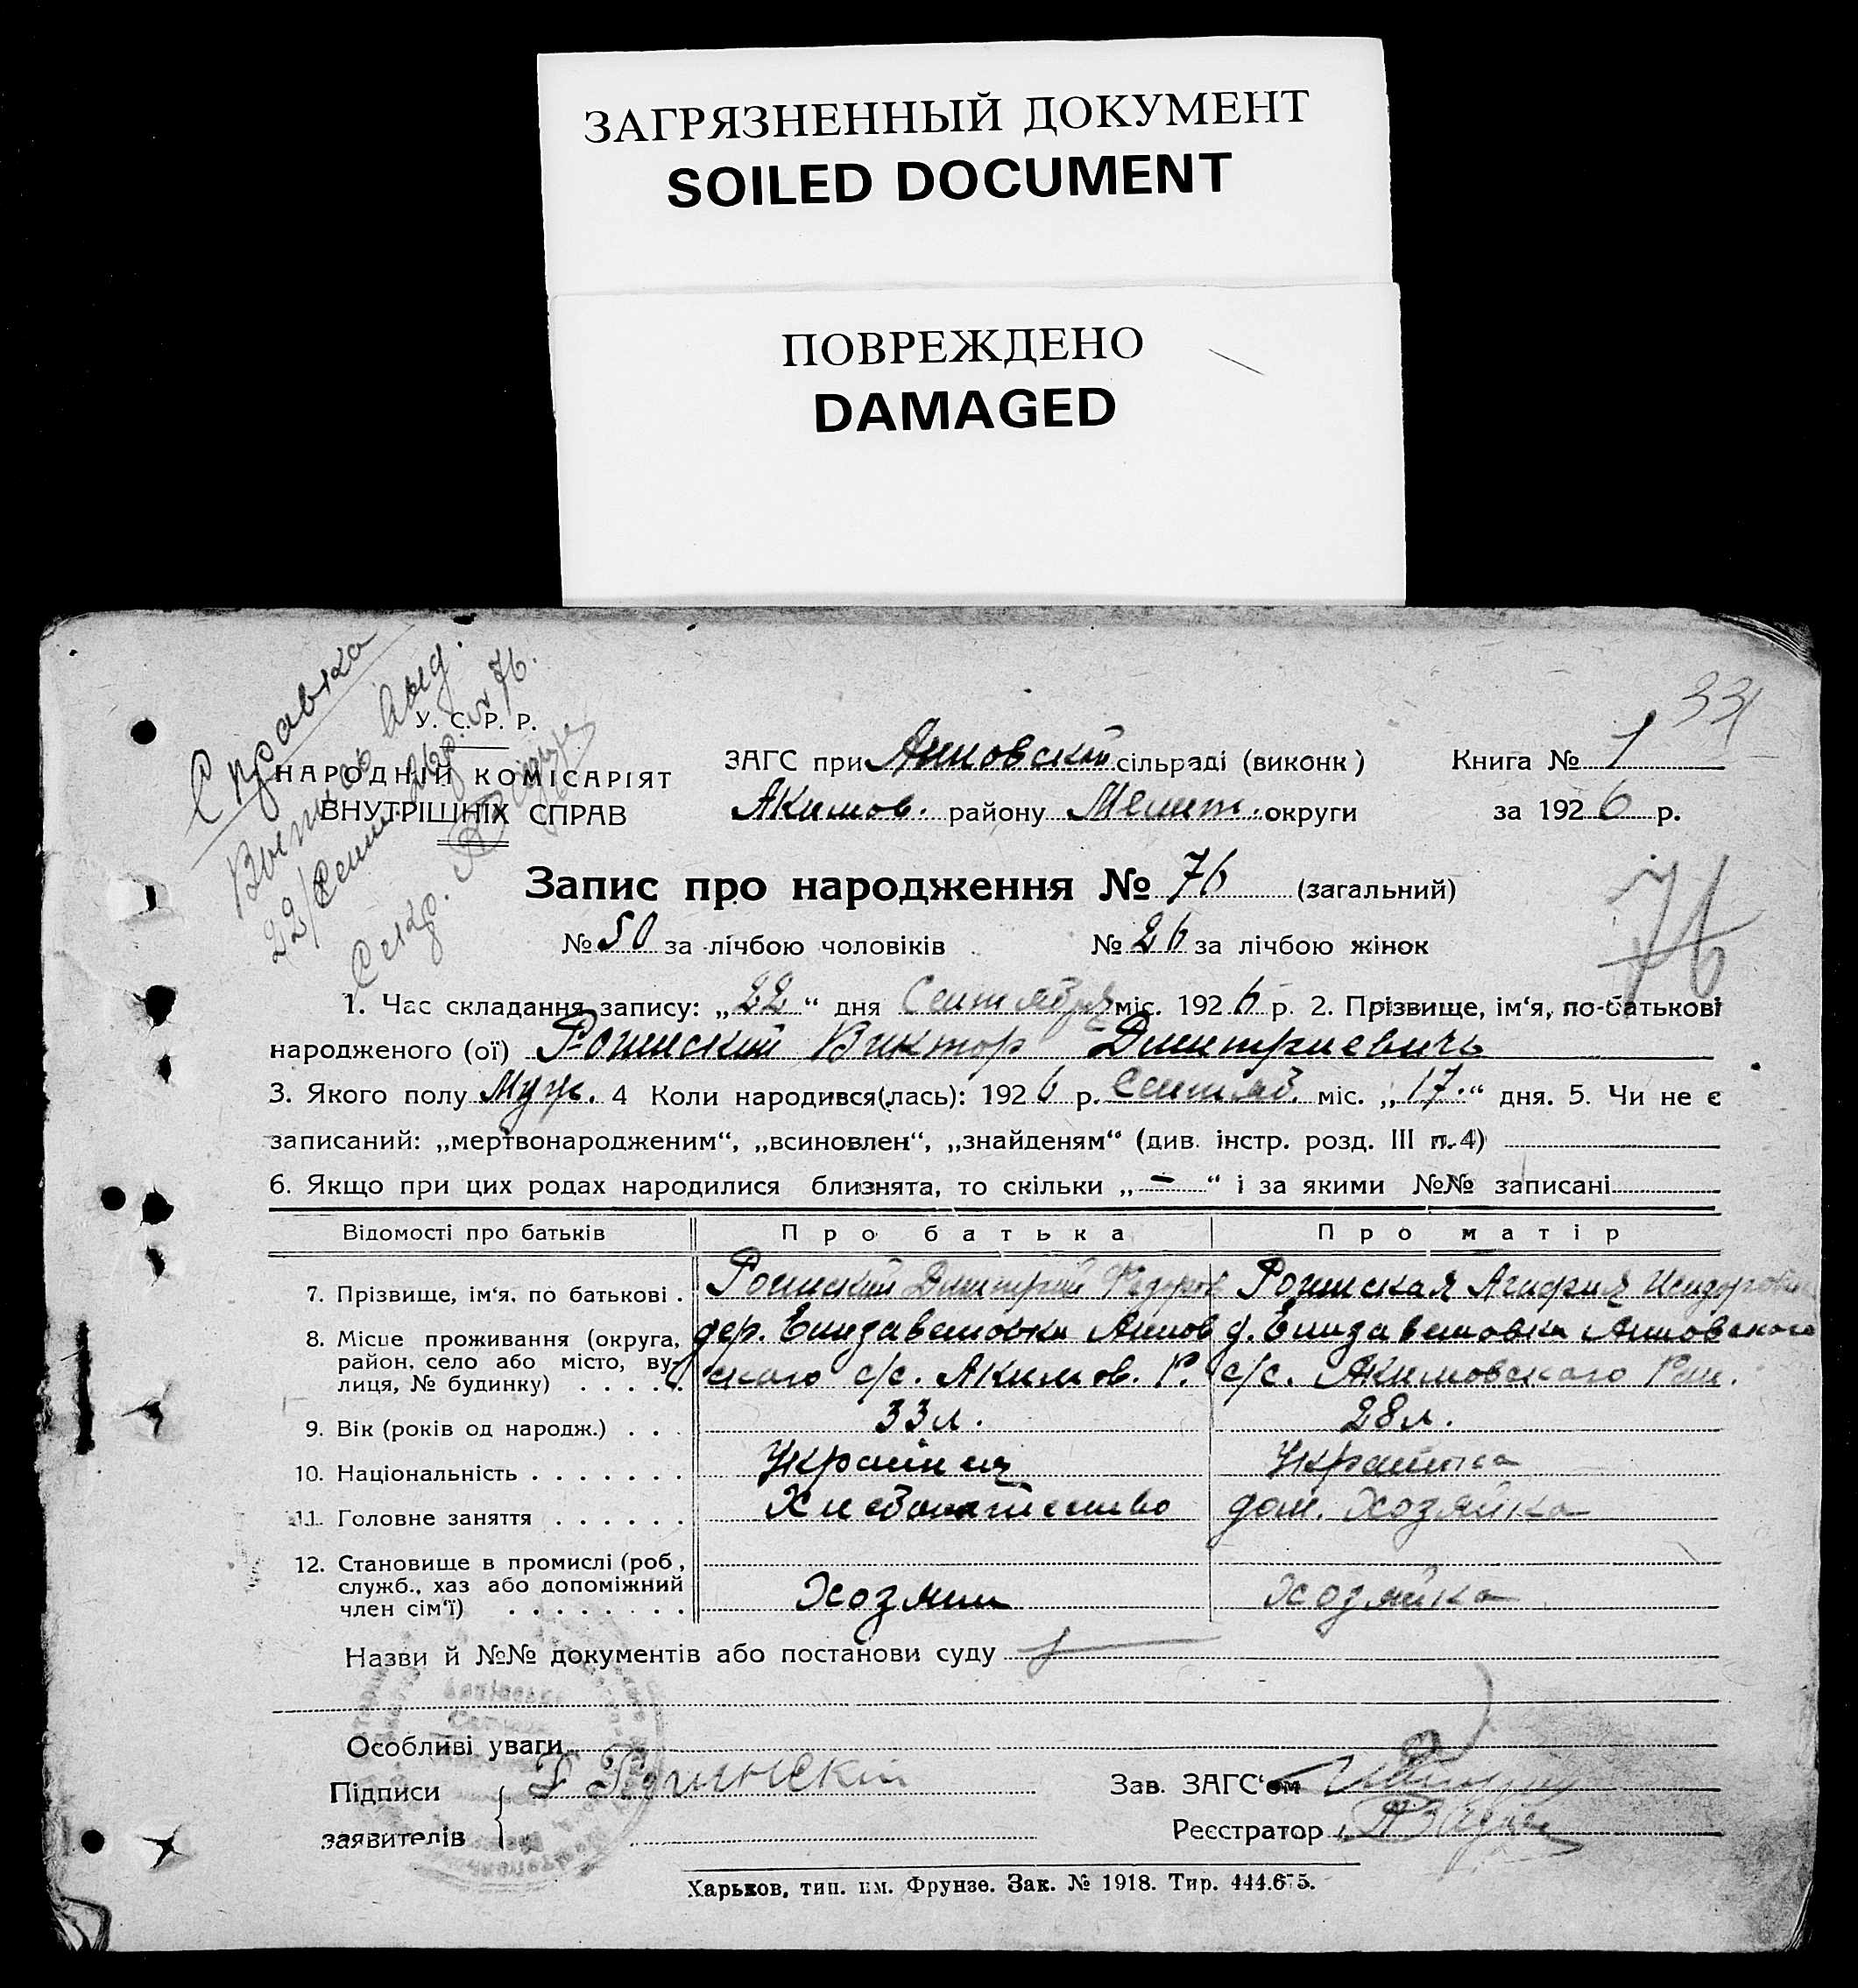 ЗАГРЯЗНЕННЫЙ ДОКУМЕНТ
SOILED DOCUMENT
ПОВРЕЖДЕНО
DAMAGED
33
Справка
У. С. Р. Р.
НАРОДНІЙ КОМІСАРІЯТ
ВНУТРІШНІХ СПРАВ
ЗАГС при Анновской сільраді (виконк) Книга № 1
Акимов. району Мелит. округи за 1926 р.
Запис про народження № 76 (загальний)
76
№ 50 за лічбою чоловіків № 26 за лічбою жінок
1. Час складання запису: „22“ дня Сентября міс. 1926 р. 2. Прізвище, ім‘я, по-батькові
народженого (ої) Рогинский Виктор Дмитриевичъ
3. Якого полу Муж. 4 Коли народився(лась): 1926 р. Сентяб. міс. „17.“ дня. 5. Чи не є
записаний: „мертвонародженим“, „всиновлен“, „знайденям“ (див. інстр. розд. III п. 4)
6. Якщо при цих родах народилися близнята, то скільки „-“ і за якими №№ записані
Відомості про батьків Про батька Про матір
7. Прізвище, ім‘я, по батькові . Рогинский Димитрий Федоров Рогинская Агафия
8. Місце проживання (округа, дер. Елизаветовка Аннов д. Елизаветовка Анновского
район, село або місто, ву-
лиця, № будинку) . . . . . ского с/с. Акимов. Р. с/с. Акимовского Рай.
9. Вік (років од народж.) . . . 33 л. 28 л.
10. Національність . . . . . . . Украінец Украінка
11. Головне заняття . . . . . . Хлебопашество дом. Хозяйка
12. Становище в промислі (роб.,
служб., хаз або допоміжний
член сім‘ї) . . . . . . . Хозяин Хозяйка
Назви й №№ документів або постанови суду
Особливі уваги
Підписи Рогинскій Зав. ЗАГС‘ом
заявителів Реєстратор
Харьков, тип. им. Фрунзе. Зак. № 1918. Тир. 444.675.